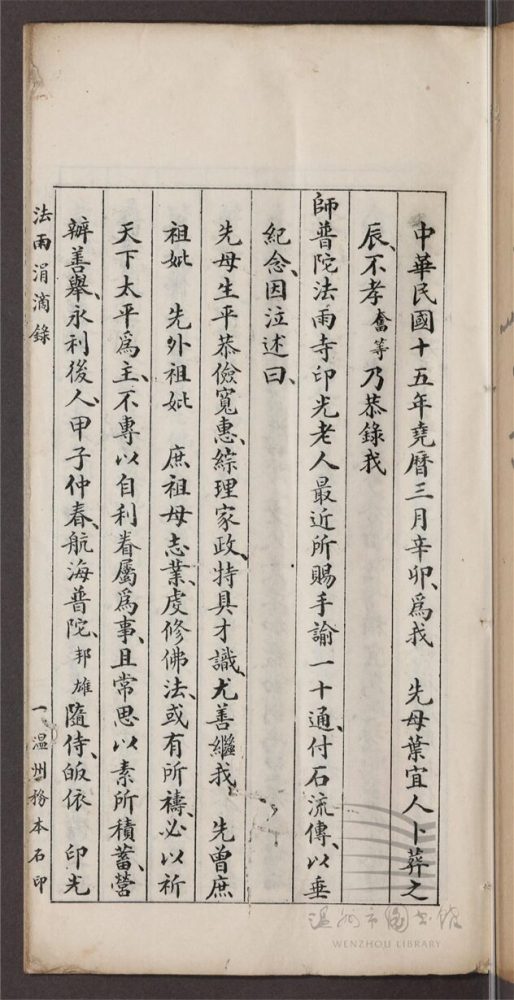 中華民國十五年堯曆三月辛卯、爲我　先母葉宜人卜葬之
辰、不孝奮等乃恭錄我
師普陀法雨寺印光老人最近所賜手諭一十通、付石流傳、以垂
紀念、因泣述曰、
先母生平恭儉寬惠、綜理家政、特具才識、尤善繼我　先曾庶
祖妣　先外祖妣　庶祖母志業、虔修佛法、或有所禱、必以祈
天下太平爲主、不專以自利眷屬爲事、且常思以素所積蓄、營
辦善舉、永利後人、甲子仲春、航海普陀、邦雄隨侍、皈依　印光
法雨涓滴錄
一　温州務本石印
温州市圖書館
WENZHOU LIBRARY